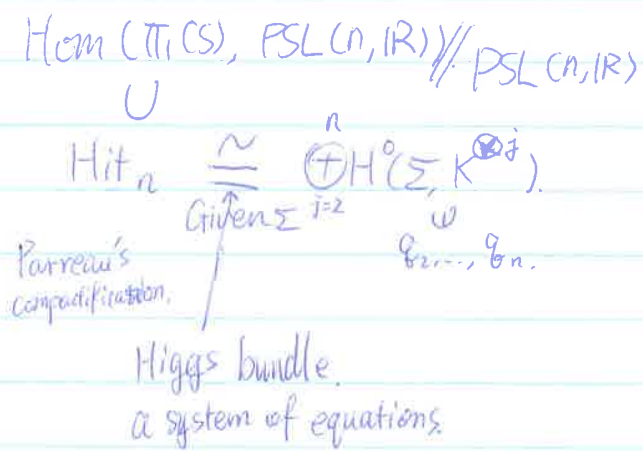 Hom (π₁(S), PSL(n,ℝ)) // PSL(n,ℝ)
∪
Hitₙ ≅ ⊕ⁿⱼ₌₂ H⁰(Σ, K^{⊗j}).
Given Σ
ω
q₂,..., qₙ.
Parreau's
compactification.
Higgs bundle.
a system of equations.